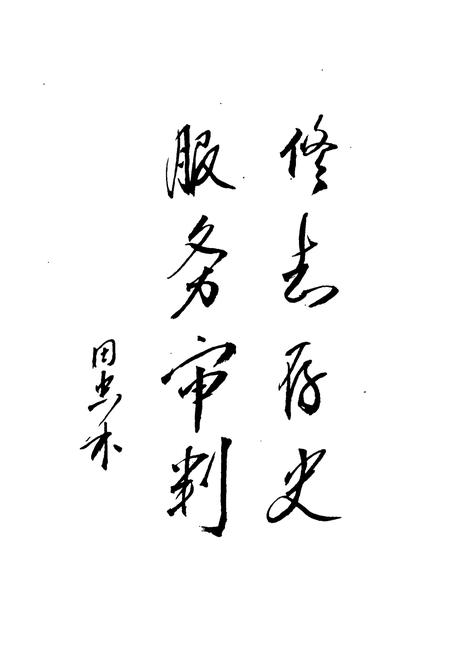 修志存史
服务审判
田忠木